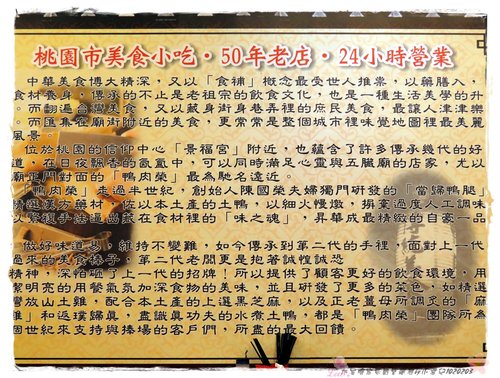 桃園市美食小吃‧50年老店‧24小時營業
中華美食博大精深，又以「食補」概念最受世人推崇，以藥膳入，
食材養身，傳承的不止是老祖宗的飲食文化，也是一種生活美學的升
。而翻遍台灣美食，又以藏身街身巷弄裡的庶民美食，最讓人津津樂
。而匯集在廟街附近的美食，更常常是整個城市裡味覺地圖裡最美麗
風景。
位於桃園的信仰中心「景福宮」附近，也蘊含了許多傳承幾代的好
道，在日夜飄香的氤氳中，可以同時滿足心靈與五臟廟的店家，尤以
廟正門對面的「鴨肉榮」最為馳名遠近。
「鴨肉榮」走過半世紀，創始人陳國榮夫婦獨門研發的「當歸鴨腿」
精選漢方藥材，佐以本土產的土鴨，以細火慢燉，摒棄過度人工調味
以繁複手法逼出藏在食材裡的「味之魂」，昇華成最精緻的自豪一品
做好味道易，維持不變難，如今傳承到第二代的手裡，面對上一代
過來的美食棒子，第二代老闆更是抱著誠惶誠恐
精神，深怕砸了上一代的招牌！所以提供了顧客更好的飲食環境，用
潔明亮的用餐氣氛加深食物的美味，並且研發了更多的菜色，如精選
灣放山土雞，配合本土產的上選黑芝麻，以及正老薑母所調烹的「麻
雞」和返璞歸真，盡識真功夫的水煮土鴨，都是「鴨肉榮」團隊所為
個世紀來支持與捧場的客戶們，所盡的最大回饋。